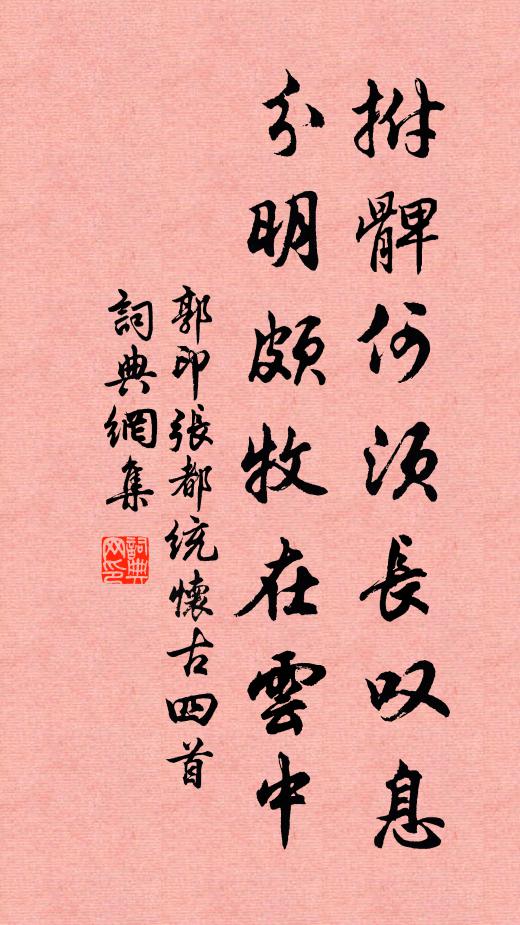 拊髀何須長叹息
分明頗牧在雲中
郭印張都統懷古四首
詞典網集
詞典網印